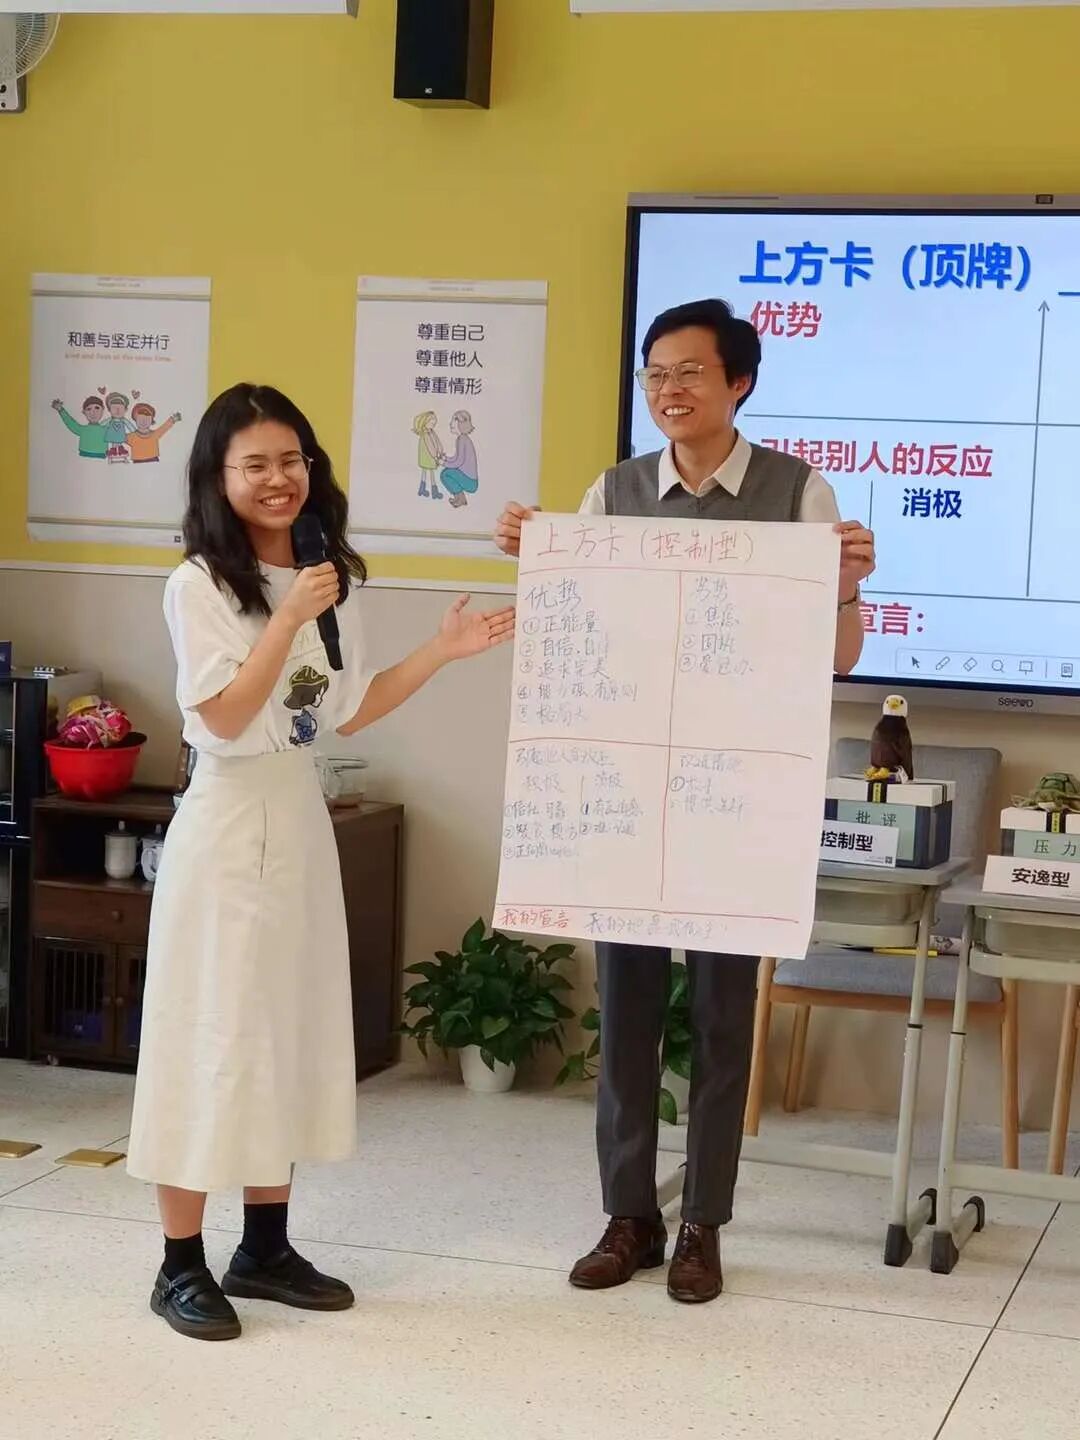 和善与坚定并行
Kind and firm at the same time
尊重自己
尊重他人
尊重情形
上方卡（顶牌）
优势
引起别人的反应
消极
宣言：
seewo
上方卡（控制型）
优势
①正能量
②自信、自
③追求完美
④能力强、有原则
⑤格局大
劣势
①焦虑
②固执
③爱包办
积极
消极
①信任 可靠
改进措施
我的宣言 我的地盘我做主
批评
控制型
压力
安逸型